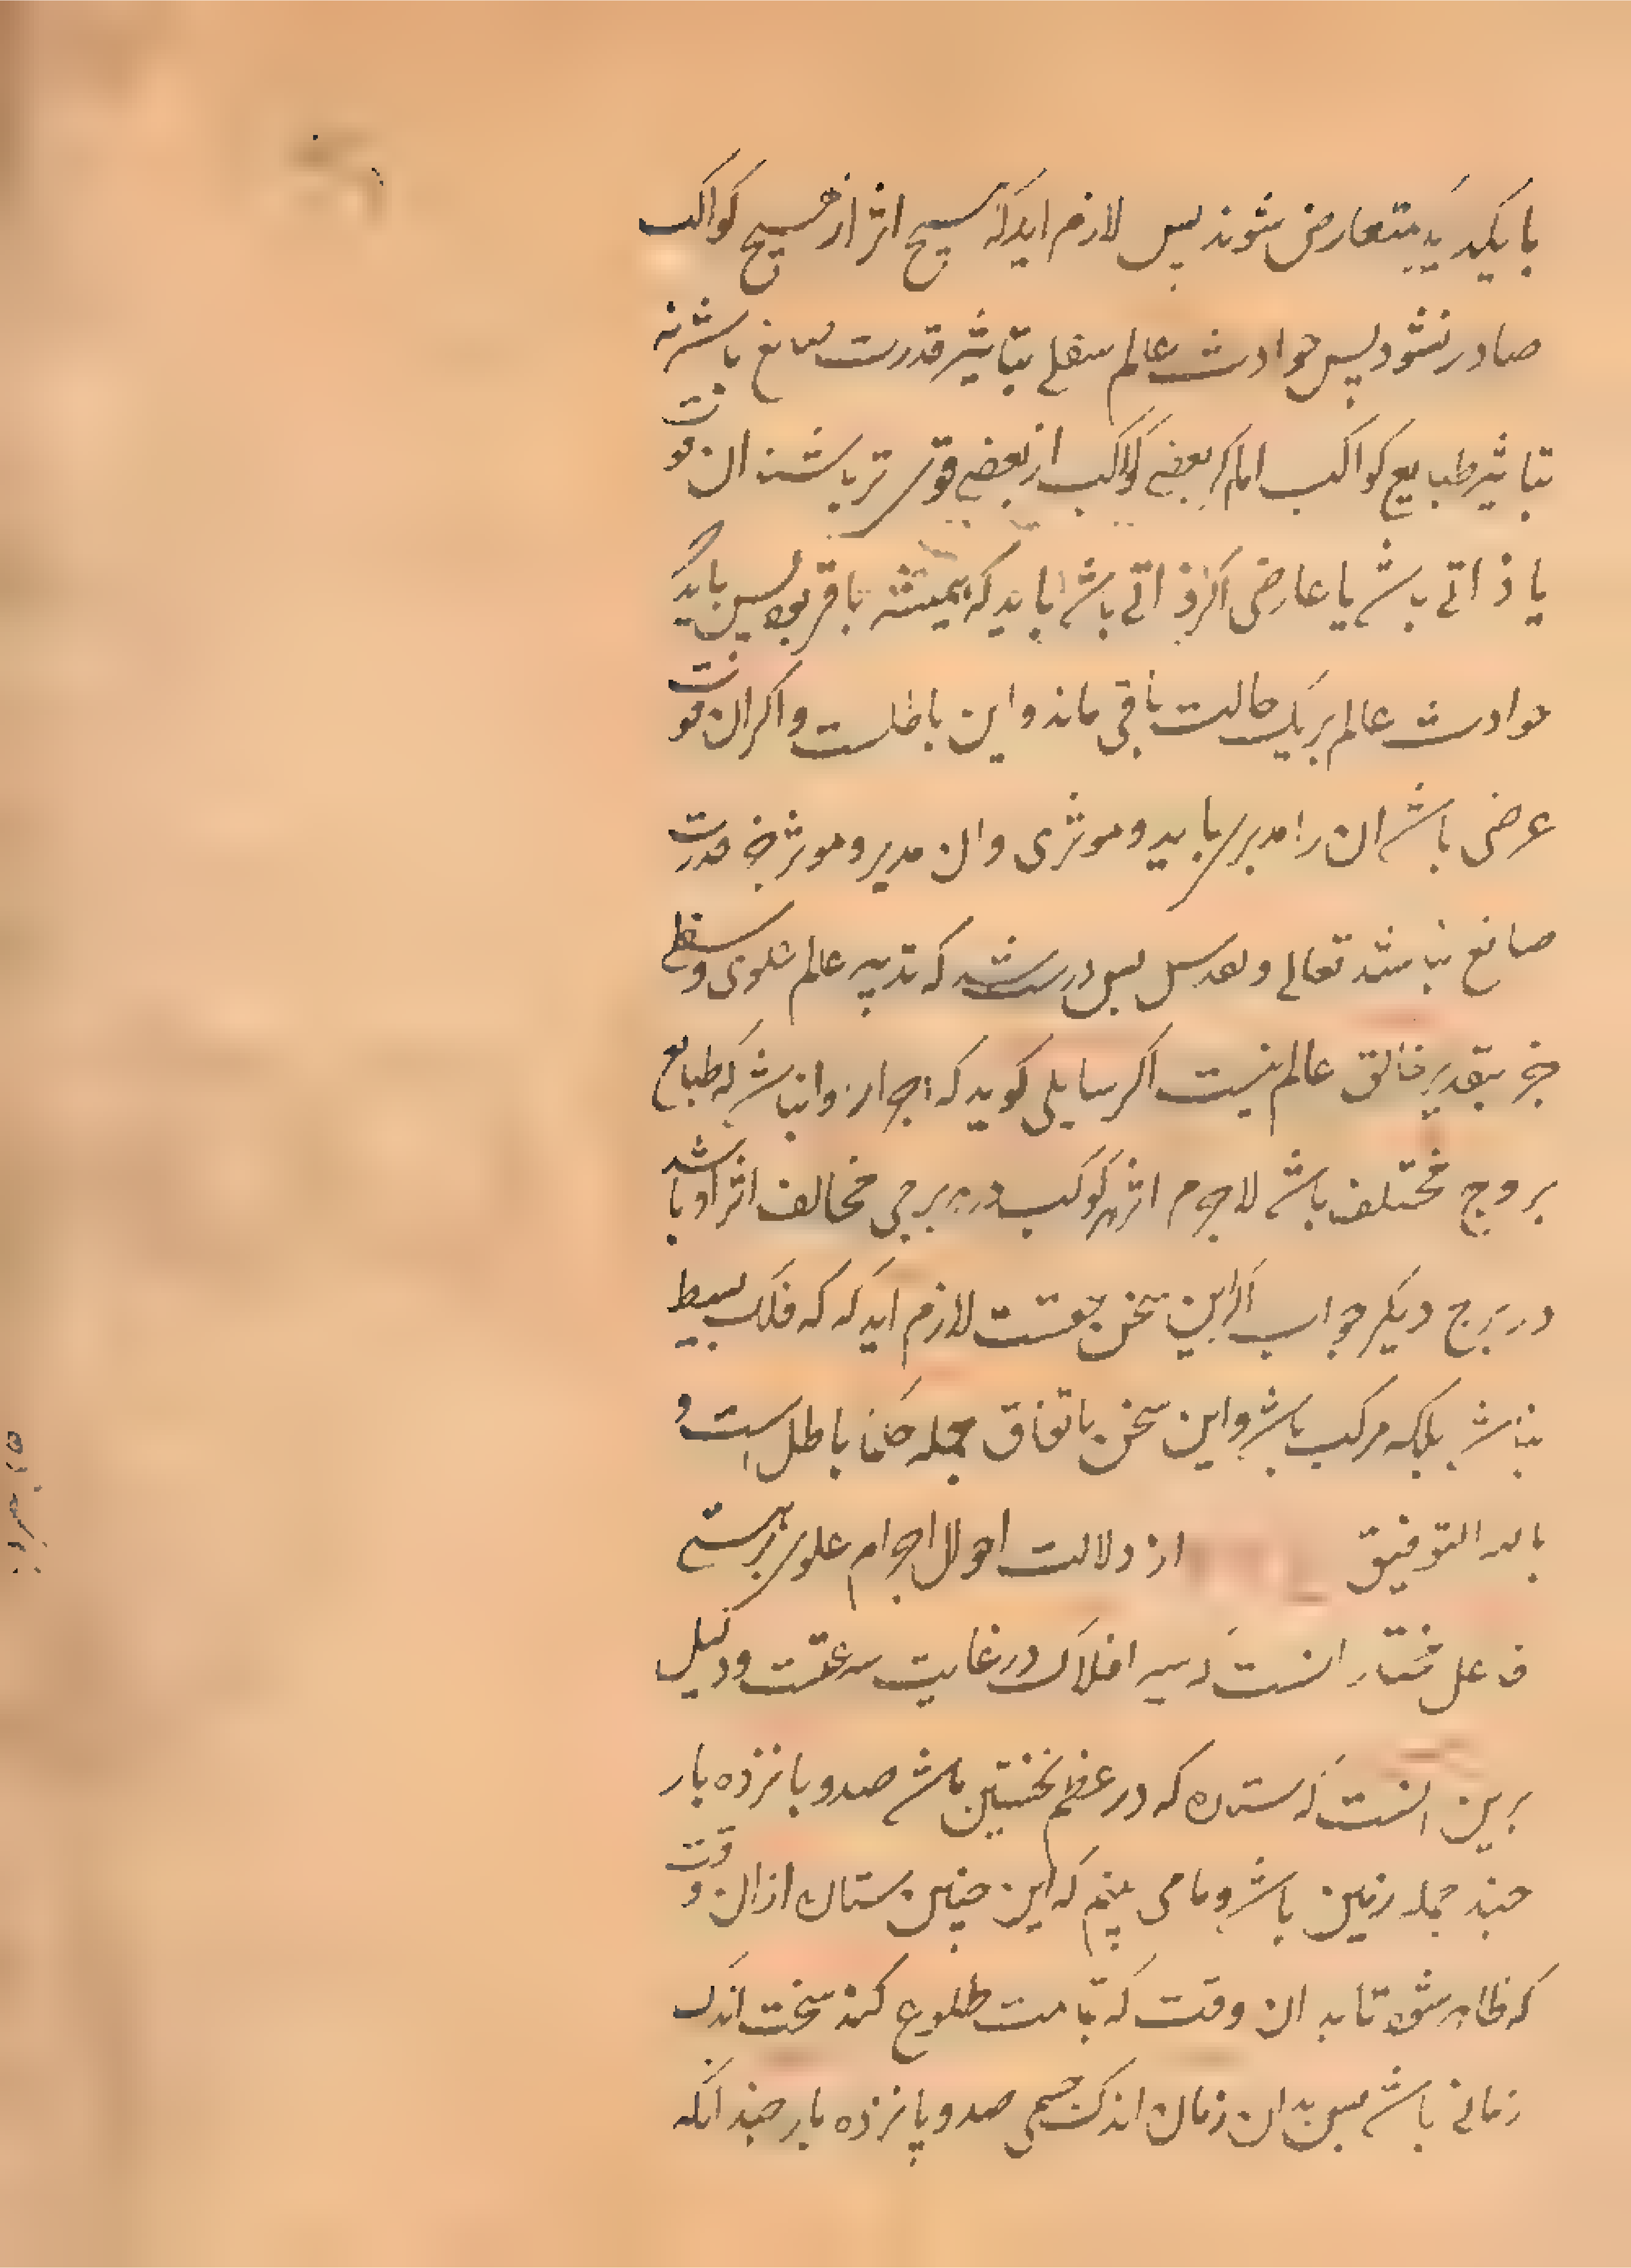 با یکدیگر متعارض شوند پس لازم اید که هیچ اثر از هیچ کواکب
صادر نشود پس حوادث عالم سفلی بتاثیر قدرت صانع باشد نه
بتاثیر طبایع کواکب اما اکر بعضی کواکب از بعضی قوی تر باشند ان قوت
یا ذاتی باشد یا عارضی اکر ذاتی باشد باید که همیشه باقی بود پس باید که
حوادث عالم بر یک حالت باقی ماند و این باطلست و اکر ان قوت
عرضی باشد ان را مدبری باید و موثری و ان مدبر و موثر جز قدرت
صانع نباشد تعالی و تقدس پس درست شد که تدبیر عالم علوی و سفلی
جز بتقدیر خالق عالم نیست اکر سایلی کوید که چرا روا نباشد که طبایع
بروج مختلف باشد لاجرم اثر هر کوکب در هر برجی مخالف اثر او باشد
در برج دیکر جواب اکر این سخن حقست لازم اید که که فلک بسیط
نباشد بلکه مرکب باشد و این سخن باتفاق جمله حکما باطل است و
بالله التوفیق از دلالت احوال اجرام علوی بر هستی
فاعل مختار انست که سیر افلاک در غایت سرعتست و دلیل
برین انست که ستاره که در عظم نخستین باشد صد و پانزده بار
چند جمله زمین باشد و ما می بینم که این چنین ستاره از ان وقت
که ظاهر شود تا بدان وقت که بتمامت طلوع کند سخت اندک
زمانی باشد پس بدان زمان اندک جسمی صد و پانزده بار چندانکه